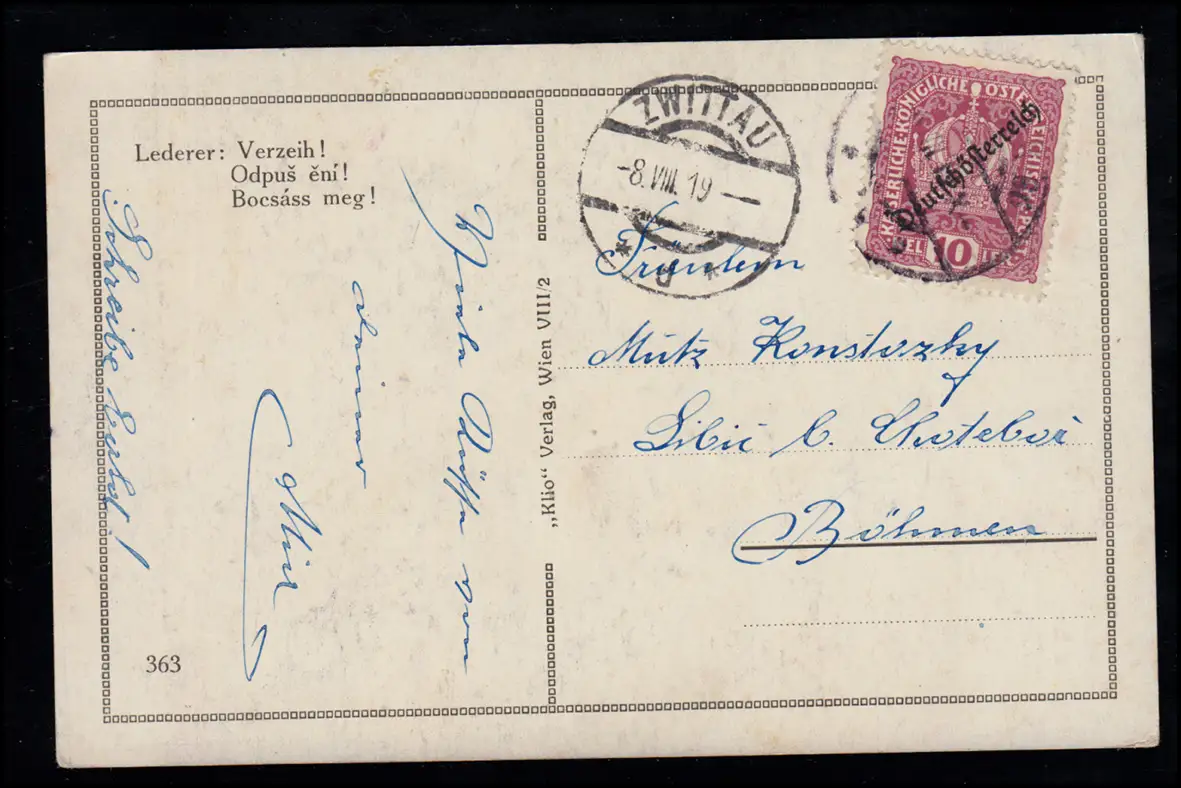 Lederer: Verzeih!
Odpuš ění!
Bocsáss meg!
Schreibe bald!
Viele Küsse von
deiner
Mia
363
„Klio“ Verlag, Wien VIII/2
ZWITTAU
-8.VIII.19
KAISERLICHE KÖNIGLICHE ÖSTERREICHISCHE
Deutschösterreich
10
Fräulein
Mutz Konstazky
Libic b. Chotebor
Böhmen